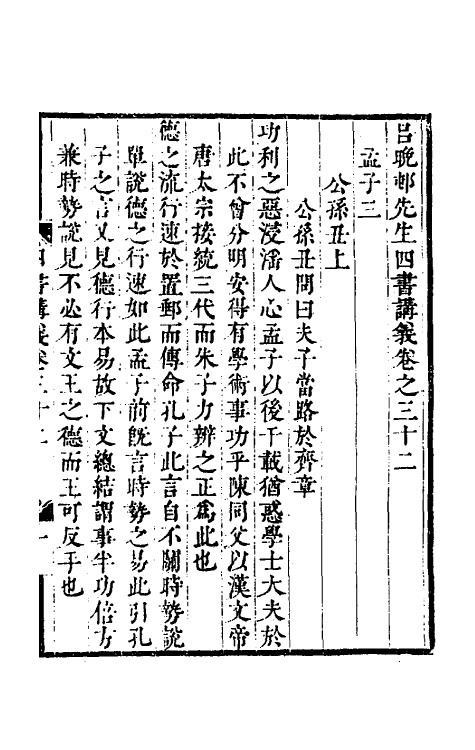 呂晚邨先生四書講義卷之三十二
孟子三
公孫丑上
公孫丑問曰夫子當路於齊章
功利之惡浸淫人心孟子以後千載猶惑學士大夫於
此不曾分明安得有學術事功乎陳同父以漢文帝
唐太宗接統三代而朱子力辨之正爲此也
德之流行速於置郵而傳命孔子此言自不關時勢說
單說德之行速如此孟子前旣言時勢之易此引孔
子之言又見德行本易故下文總結謂事半功倍方
兼時勢說見不必有文王之德而王可反手也
四書講義卷三十二
一